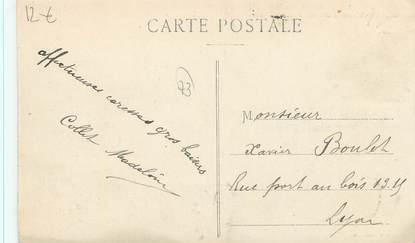 12-€
CARTE POSTALE
73
affectueuses caresses gros baisers
Collet Madeleine
Monsieur
Xavier Boulet
Rue port au bois 13.15
Lyon